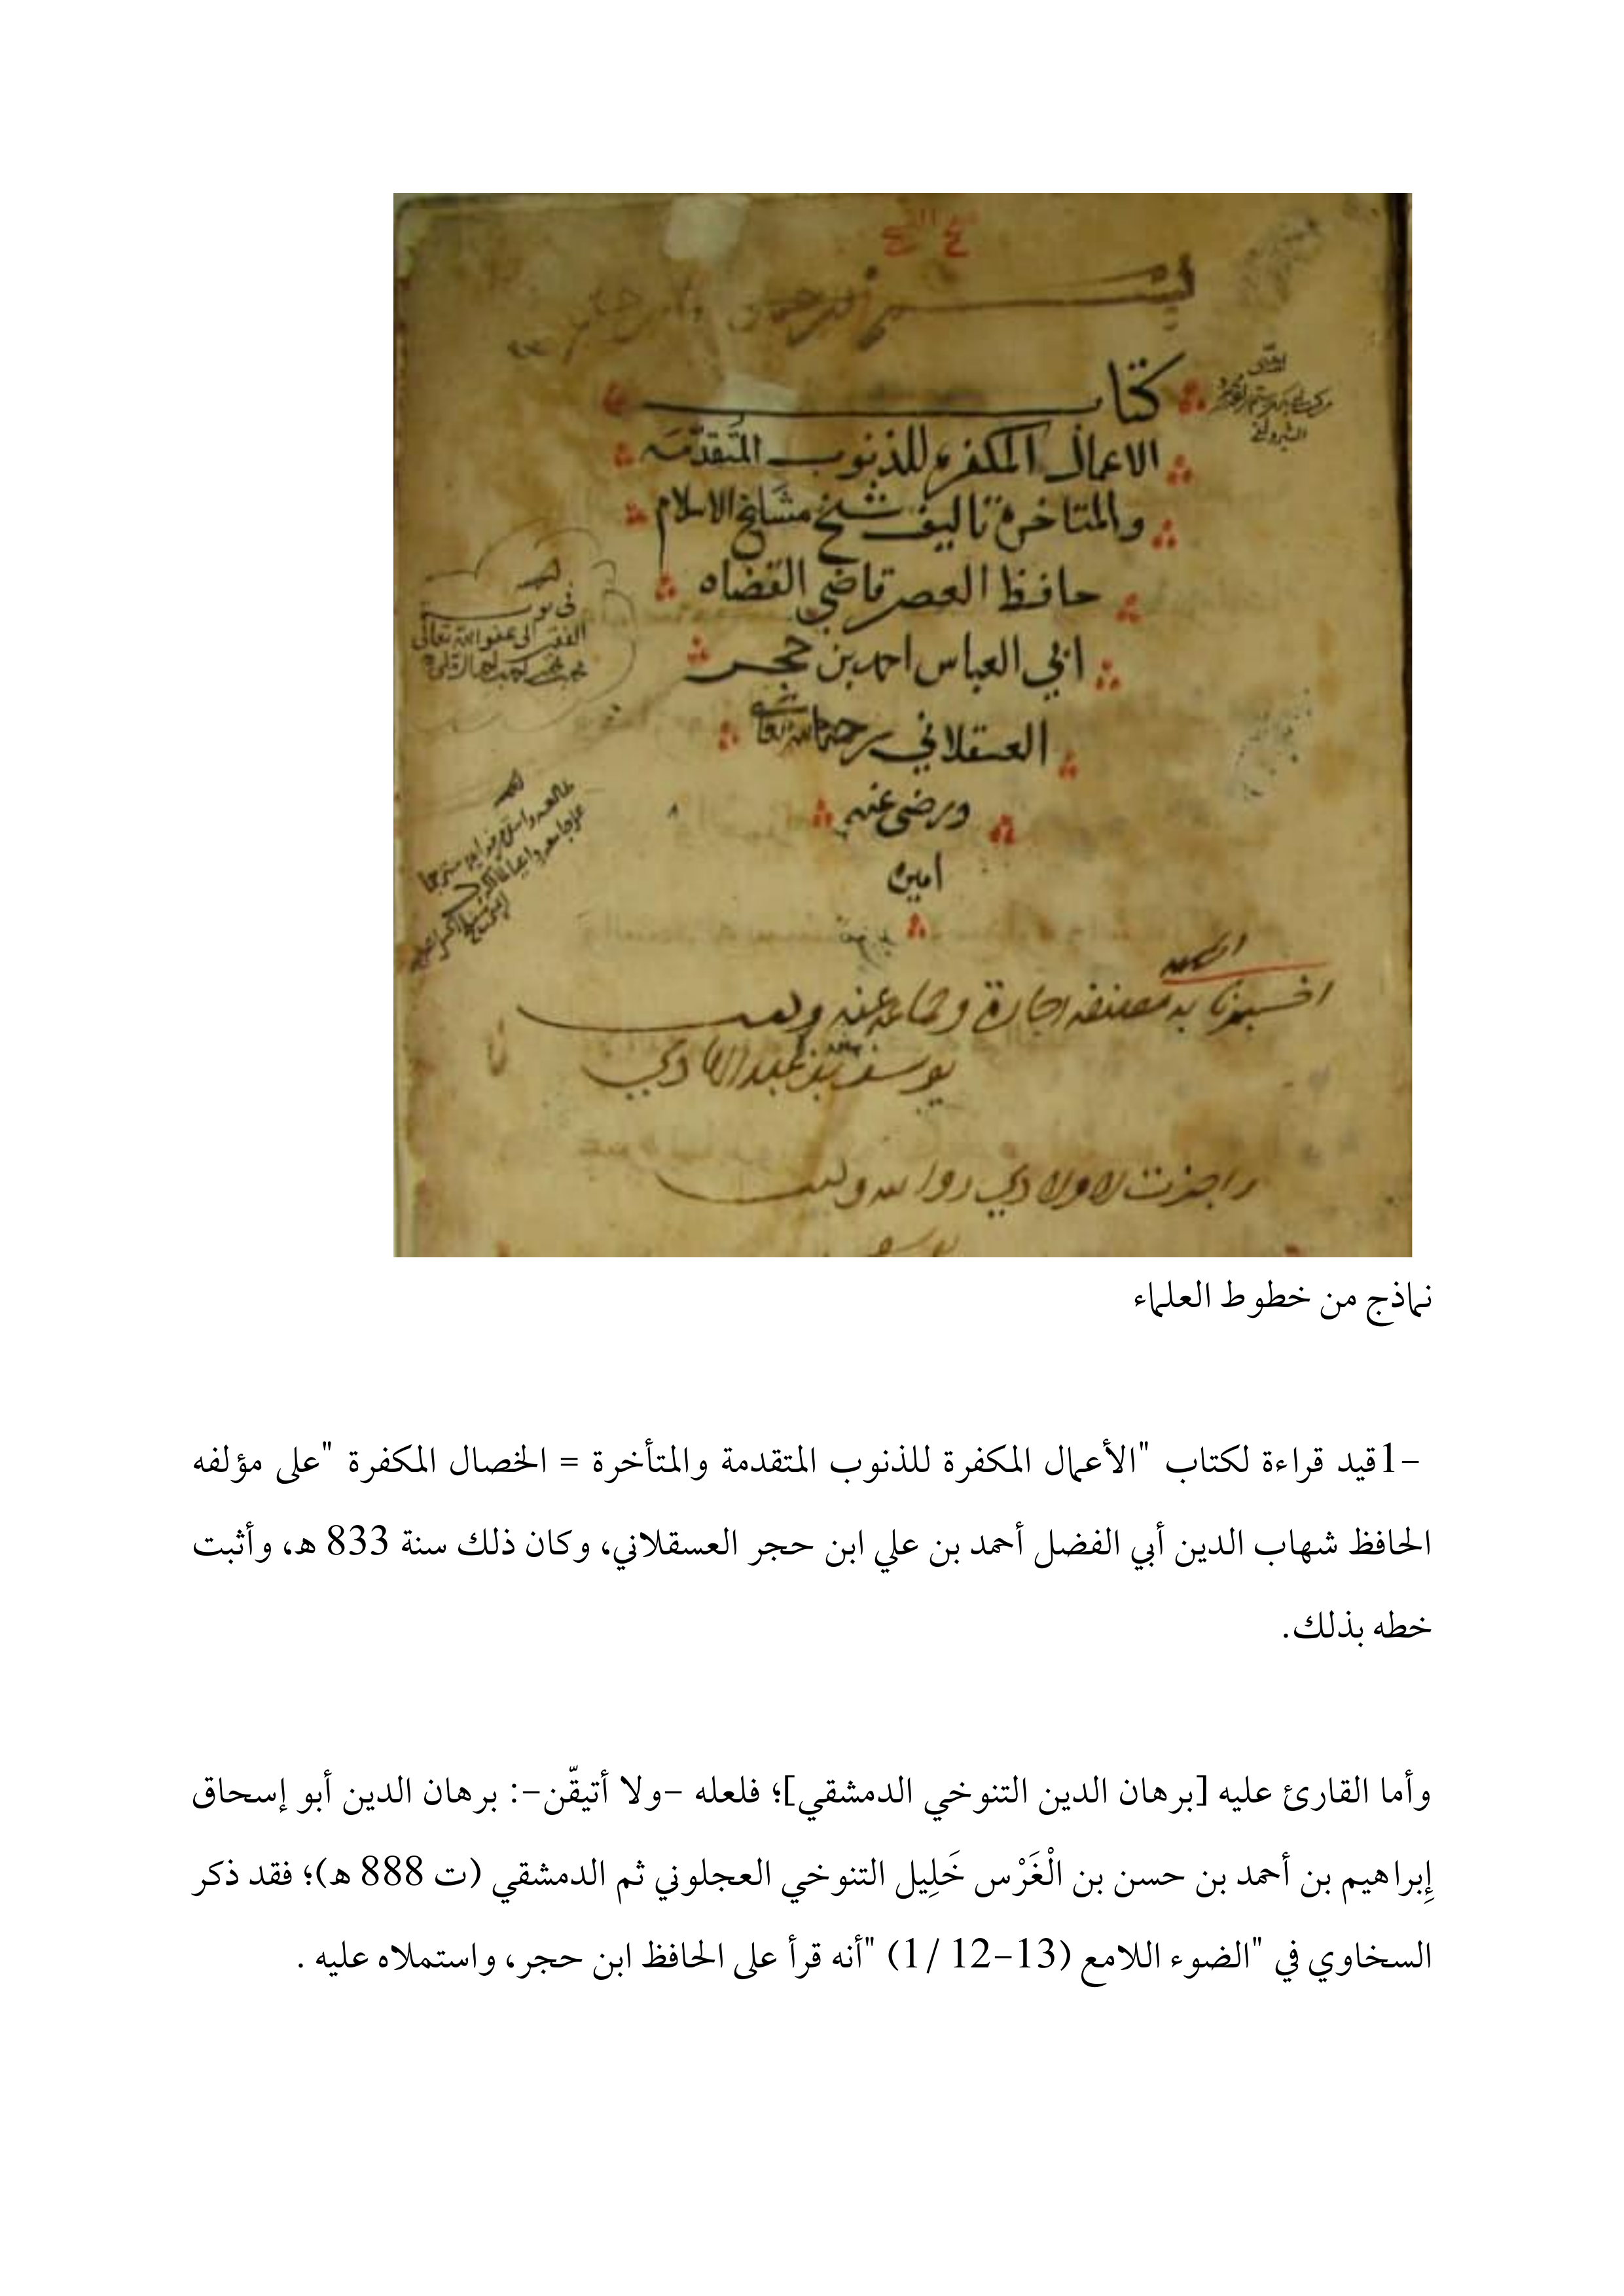 بسم الله الرحمن
كتاب
الاعمال المكفره للذنوب المتقدمة
والمتاخرة تاليف شيخ مشايخ الاسلام
حافظ العصر قاضي القضاه
ابي العباس احمد بن حجر
العسقلاني رحمه الله تعالى
ورضى عنه
امين
اخبرنا به مصنفه اجازة وجماعة عنه وكتب
يوسف بن عبد الهادي
واجزت لاولادي وكتب
يوسف
نماذج من خطوط العلماء
-1قيد قراءة لكتاب "الأعمال المكفرة للذنوب المتقدمة والمتأخرة = الخصال المكفرة "على مؤلفه
الحافظ شهاب الدين أبي الفضل أحمد بن علي ابن حجر العسقلاني، وكان ذلك سنة 833 هـ، وأثبت
خطه بذلك.
وأما القارئ عليه [برهان الدين التنوخي الدمشقي]؛ فلعله -ولا أتيقّن-: برهان الدين أبو إسحاق
إِبراهيم بن أحمد بن حسن بن الْغَرْس خَلِيل التنوخي العجلوني ثم الدمشقي (ت 888 هـ)؛ فقد ذكر
السخاوي في "الضوء اللامع (13-12 /1) "أنه قرأ على الحافظ ابن حجر، واستملاه عليه .